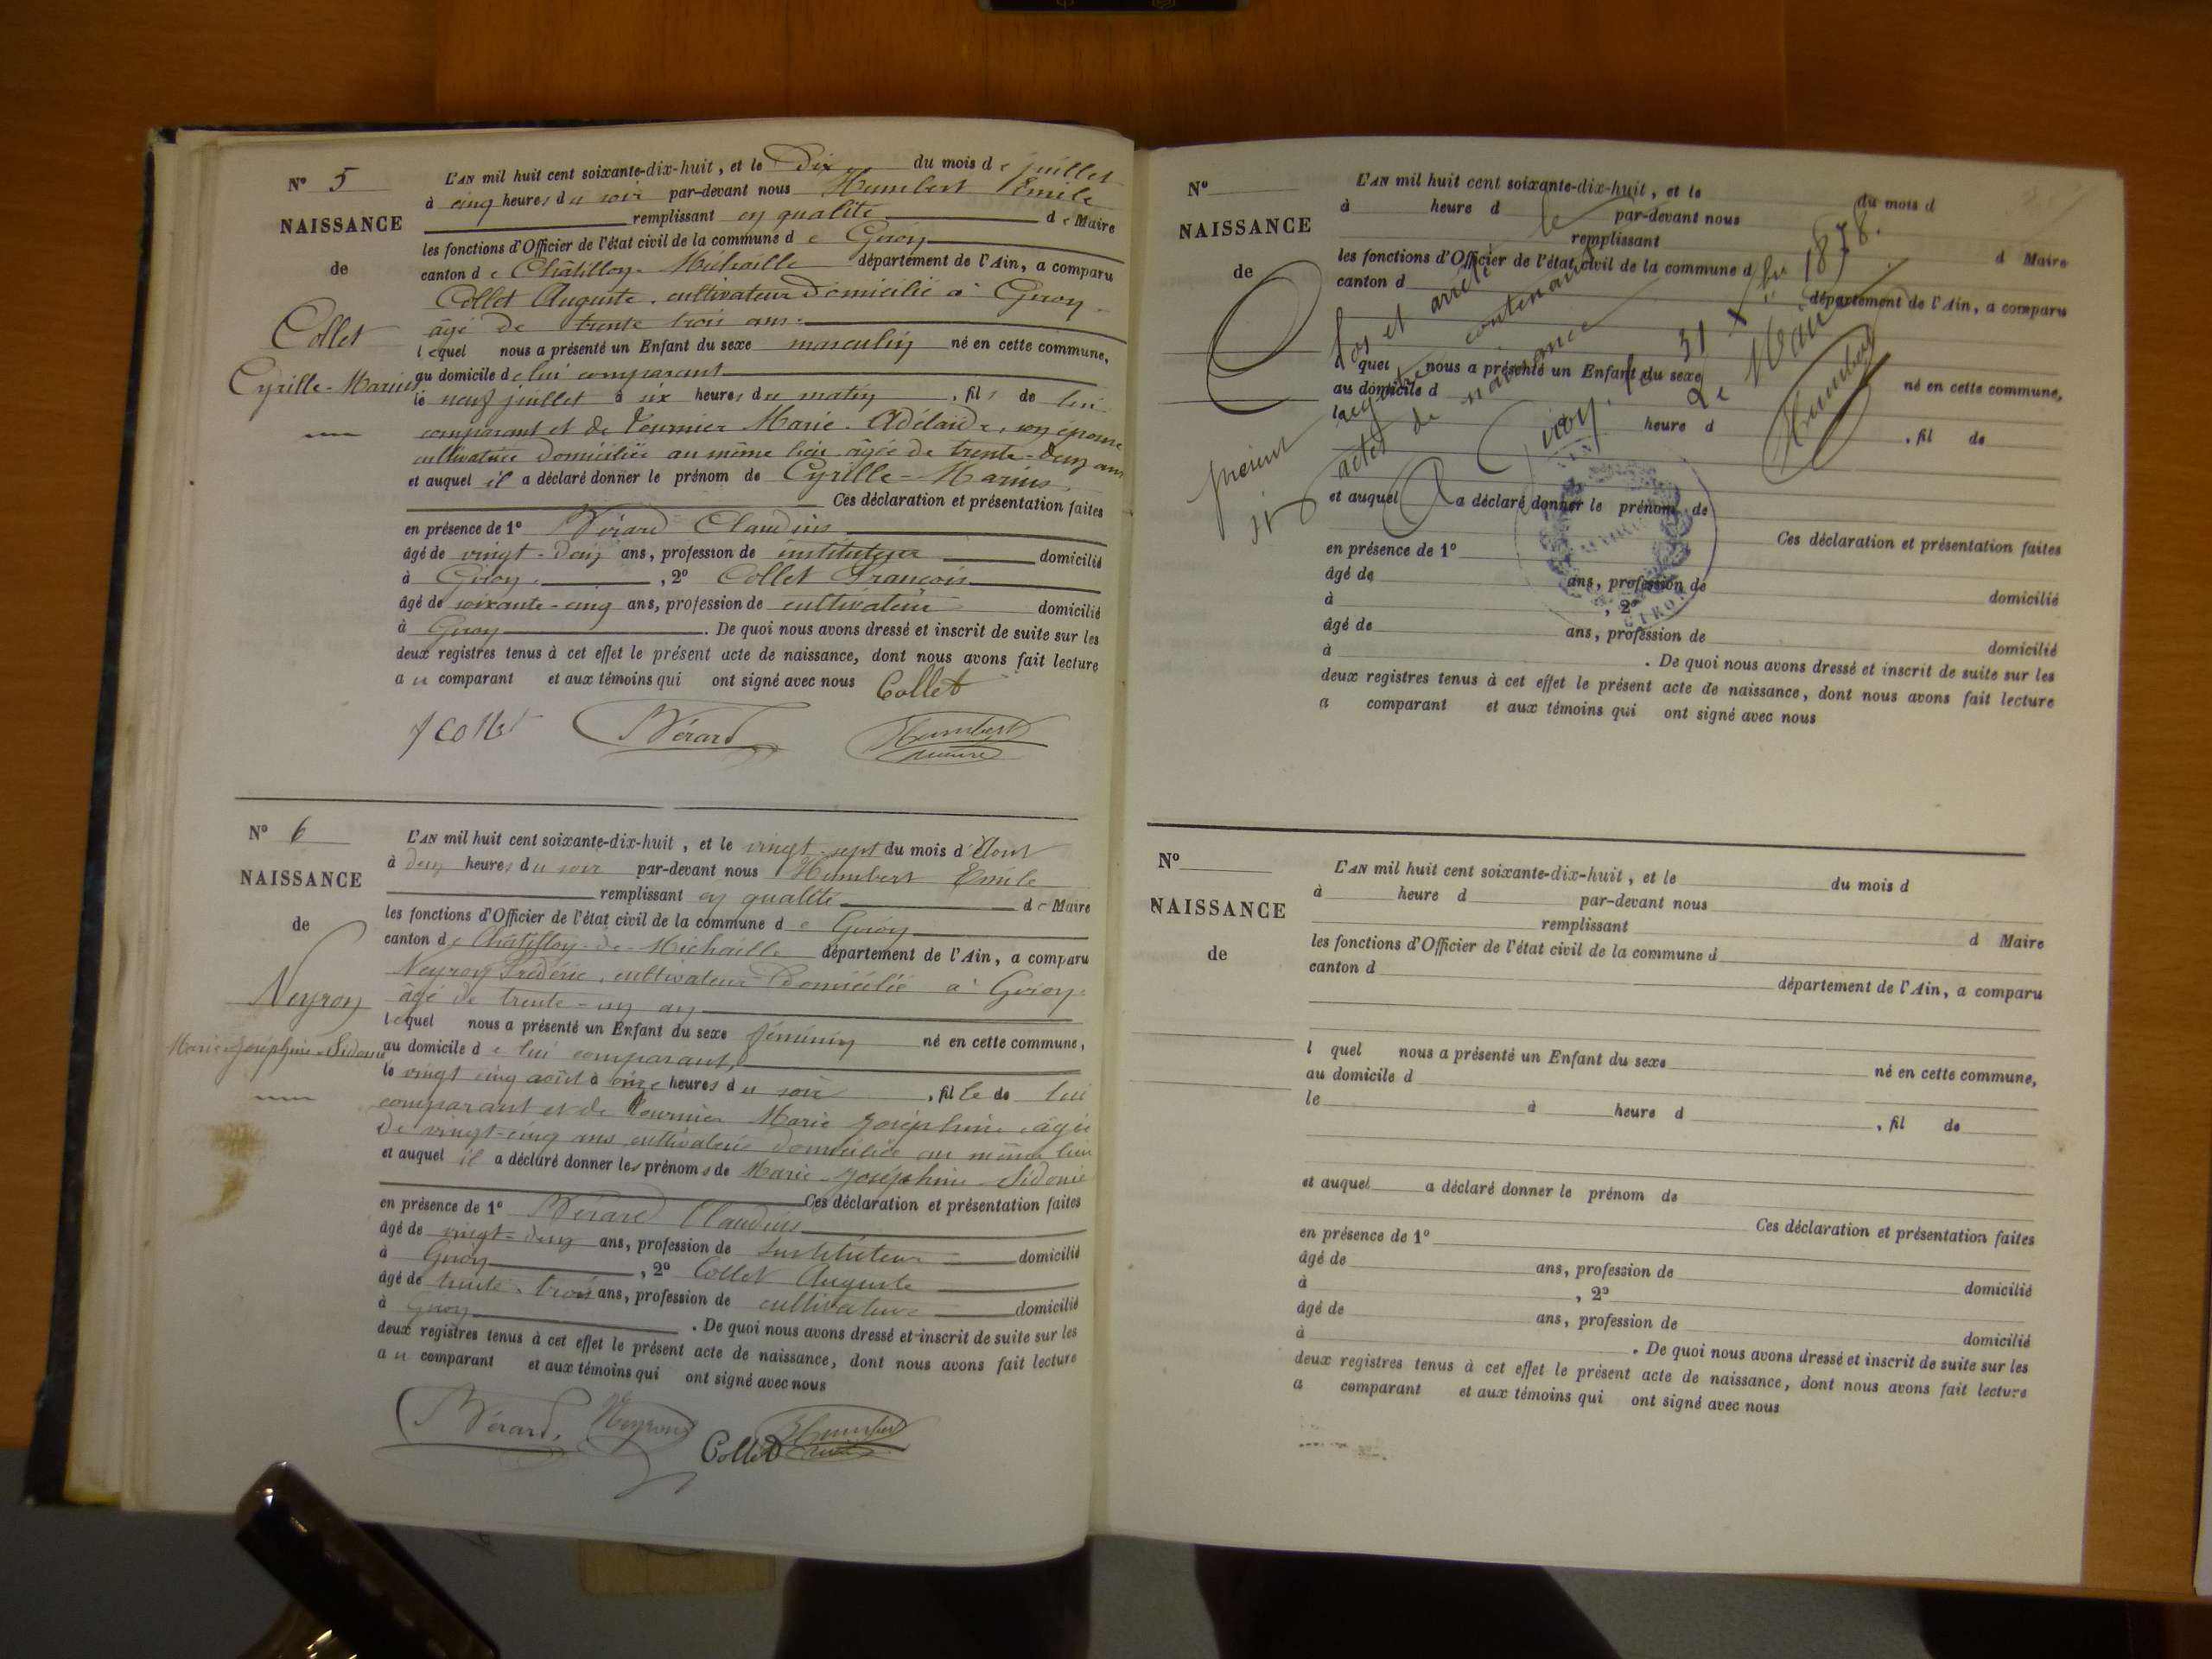 N° 5
NAISSANCE
de
Collet
Cyrille-Marius
L'AN mil huit cent soixante-dix-huit, et le Dix du mois de juillet
à cinq heures du soir par-devant nous Humbert Emile
remplissant en qualité de Maire
les fonctions d'Officier de l'état civil de la commune de Giron
canton de Châtillon-Michaille département de l'Ain, a comparu
Collet Auguste, cultivateur domicilié à Giron
âgé de trente trois ans.
lequel nous a présenté un Enfant du sexe masculin né en cette commune,
au domicile de lui comparant
le neuf juillet à six heures du matin, fils de lui
comparant et de Tournier Marie-Adélaïde, son épouse
cultivatrice domiciliée au même lieu âgée de trente-deux ans
et auquel il a déclaré donner le prénom de Cyrille-Marius
Ces déclaration et présentation faites
en présence de 1° Bérard Claudius
âgé de vingt-deux ans, profession de instituteur domicilié
à Giron, 2° Collet François
âgé de soixante-cinq ans, profession de cultivateur domicilié
à Giron. De quoi nous avons dressé et inscrit de suite sur les
deux registres tenus à cet effet le présent acte de naissance, dont nous avons fait lecture
au comparant et aux témoins qui ont signé avec nous Collet
f collet Bérard Humbert
maire
N° 6
NAISSANCE
de
Neyron
Marie-Joséphine-Sidonie
L'AN mil huit cent soixante-dix-huit, et le vingt-sept du mois d'Août
à deux heures du soir par-devant nous Humbert Emile
remplissant en qualité de Maire
les fonctions d'Officier de l'état civil de la commune de Giron
canton de Châtillon-de-Michaille département de l'Ain, a comparu
Neyron Frédéric, cultivateur domicilié à Giron
âgé de trente-un an
lequel nous a présenté un Enfant du sexe féminin né en cette commune,
au domicile de lui comparant,
le vingt cinq août à onze heures du soir, fille de lui
comparant et de Tournier Marie Joséphine âgée
de vingt-cinq ans cultivatrice domiciliée au même lieu
et auquel il a déclaré donner les prénoms de Marie-Joséphine-Sidonie
Ces déclaration et présentation faites
en présence de 1° Bérard Claudius
âgé de vingt-deux ans, profession de Instituteur domicilié
à Giron, 2° Collet Auguste
âgé de trente-trois ans, profession de cultivateur domicilié
à Giron. De quoi nous avons dressé et inscrit de suite sur les
deux registres tenus à cet effet le présent acte de naissance, dont nous avons fait lecture
au comparant et aux témoins qui ont signé avec nous
Bérard, Neyron Collet Humbert
N°
NAISSANCE
de
L'AN mil huit cent soixante-dix-huit, et le du mois d
à heure d par-devant nous
remplissant d Maire
les fonctions d'Officier de l'état civil de la commune d
canton d département de l'Ain, a comparu
l quel nous a présenté un Enfant du sexe né en cette commune,
au domicile d
le heure d, fil de
et auquel a déclaré donner le prénom de
Ces déclaration et présentation faites
en présence de 1°
âgé de ans, profession de domicilié
à, 2°
âgé de ans, profession de domicilié
à. De quoi nous avons dressé et inscrit de suite sur les
deux registres tenus à cet effet le présent acte de naissance, dont nous avons fait lecture
a comparant et aux témoins qui ont signé avec nous
Clos et arrêté le
présent registre contenant
six actes de naissance
A Giron, le 31 Xbre 1878.
Le Maire
Humbert
MAIRIE
GIRON
N°
NAISSANCE
de
L'AN mil huit cent soixante-dix-huit, et le du mois d
à heure d par-devant nous
remplissant d Maire
les fonctions d'Officier de l'état civil de la commune d
canton d département de l'Ain, a comparu
l quel nous a présenté un Enfant du sexe né en cette commune,
au domicile d
le à heure d, fil de
et auquel a déclaré donner le prénom de
Ces déclaration et présentation faites
en présence de 1°
âgé de ans, profession de domicilié
à, 2°
âgé de ans, profession de domicilié
à. De quoi nous avons dressé et inscrit de suite sur les
deux registres tenus à cet effet le présent acte de naissance, dont nous avons fait lecture
a comparant et aux témoins qui ont signé avec nous